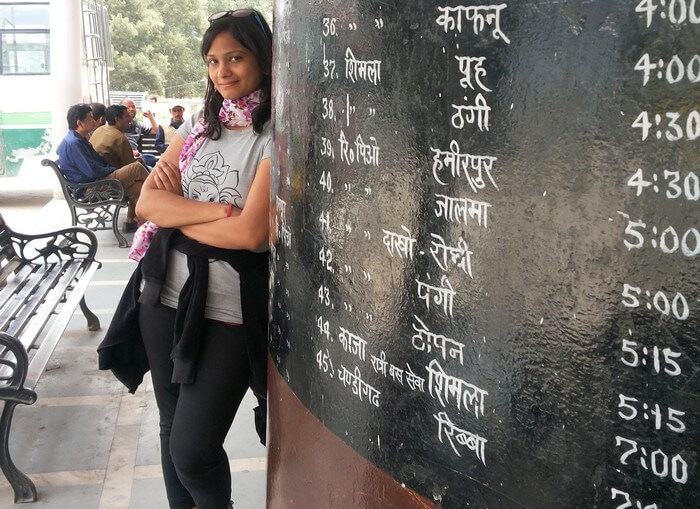 36. " " काफनू 4:00
37. शिमला पूह 4:00
38. " " ठंगी 4:30
39. रि॰पिओ हमीरपुर 4:30
40. " " जालमा 5:00
41. " " दाखो - रोघी 5:00
42. " " पंगी 5:15
43. " " टोपन 5:15
44. काजा रात्री बस सेवा शिमला 7:00
45. चण्डीगढ रिब्बा